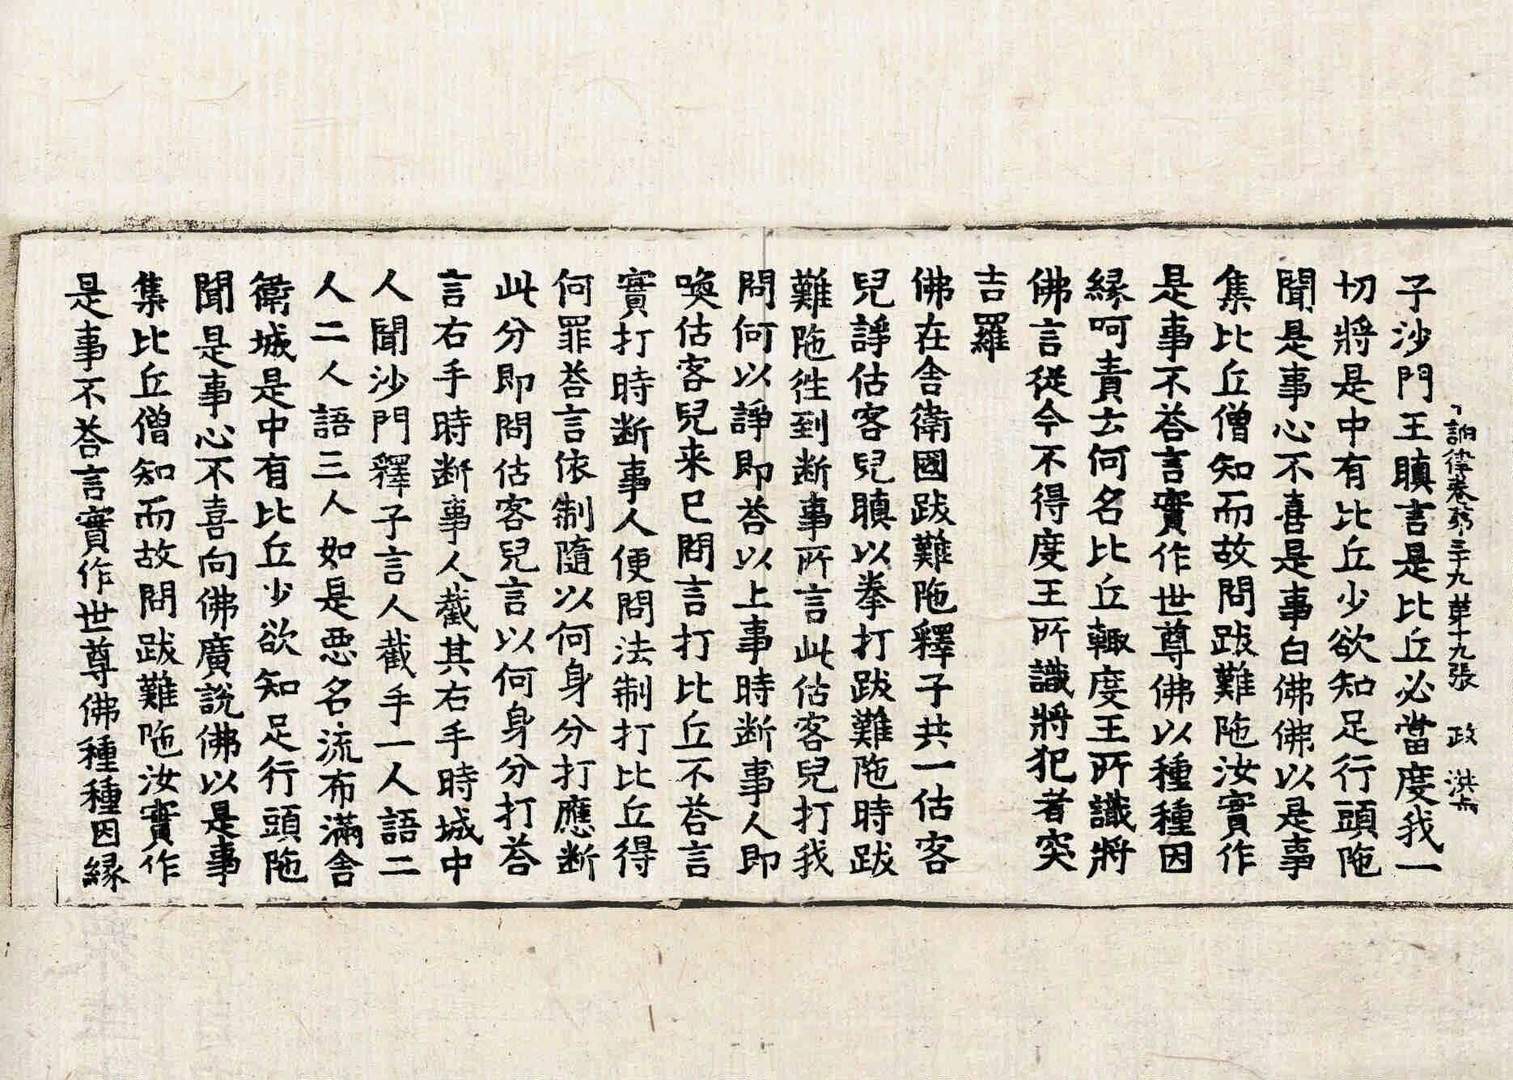 訓律卷第三十九 第十九張 政 洪
子沙門王瞋言是比丘必當度我一
切將是中有比丘少欲知足行頭陁
聞是事心不喜是事白佛佛以是事
集比丘僧知而故問跋難陁汝實作
是事不荅言實作世尊佛以種種因
縁呵責云何名比丘輙度王所識將
佛言從今不得度王所識將犯者突
吉羅
佛在舍衛國跋難陁釋子共一估客
兒諍估客兒瞋以拳打跋難陁時跋
難陁徃到断事所言此估客兒打我
問何以諍即荅以上事時断事人即
喚估客兒来已問言打比丘不荅言
實打時断事人便問法制打比丘得
何罪荅言依制隨以何身分打應断
此分即問估客兒言以何身分打荅
言右手時断事人截其右手時城中
人聞沙門釋子言人截手一人語二
人二人語三人如是惡名流布滿舍
衛城是中有比丘少欲知足行頭陁
聞是事心不喜向佛廣說佛以是事
集比丘僧知而故問跋難陁汝實作
是事不荅言實作世尊佛種種因縁